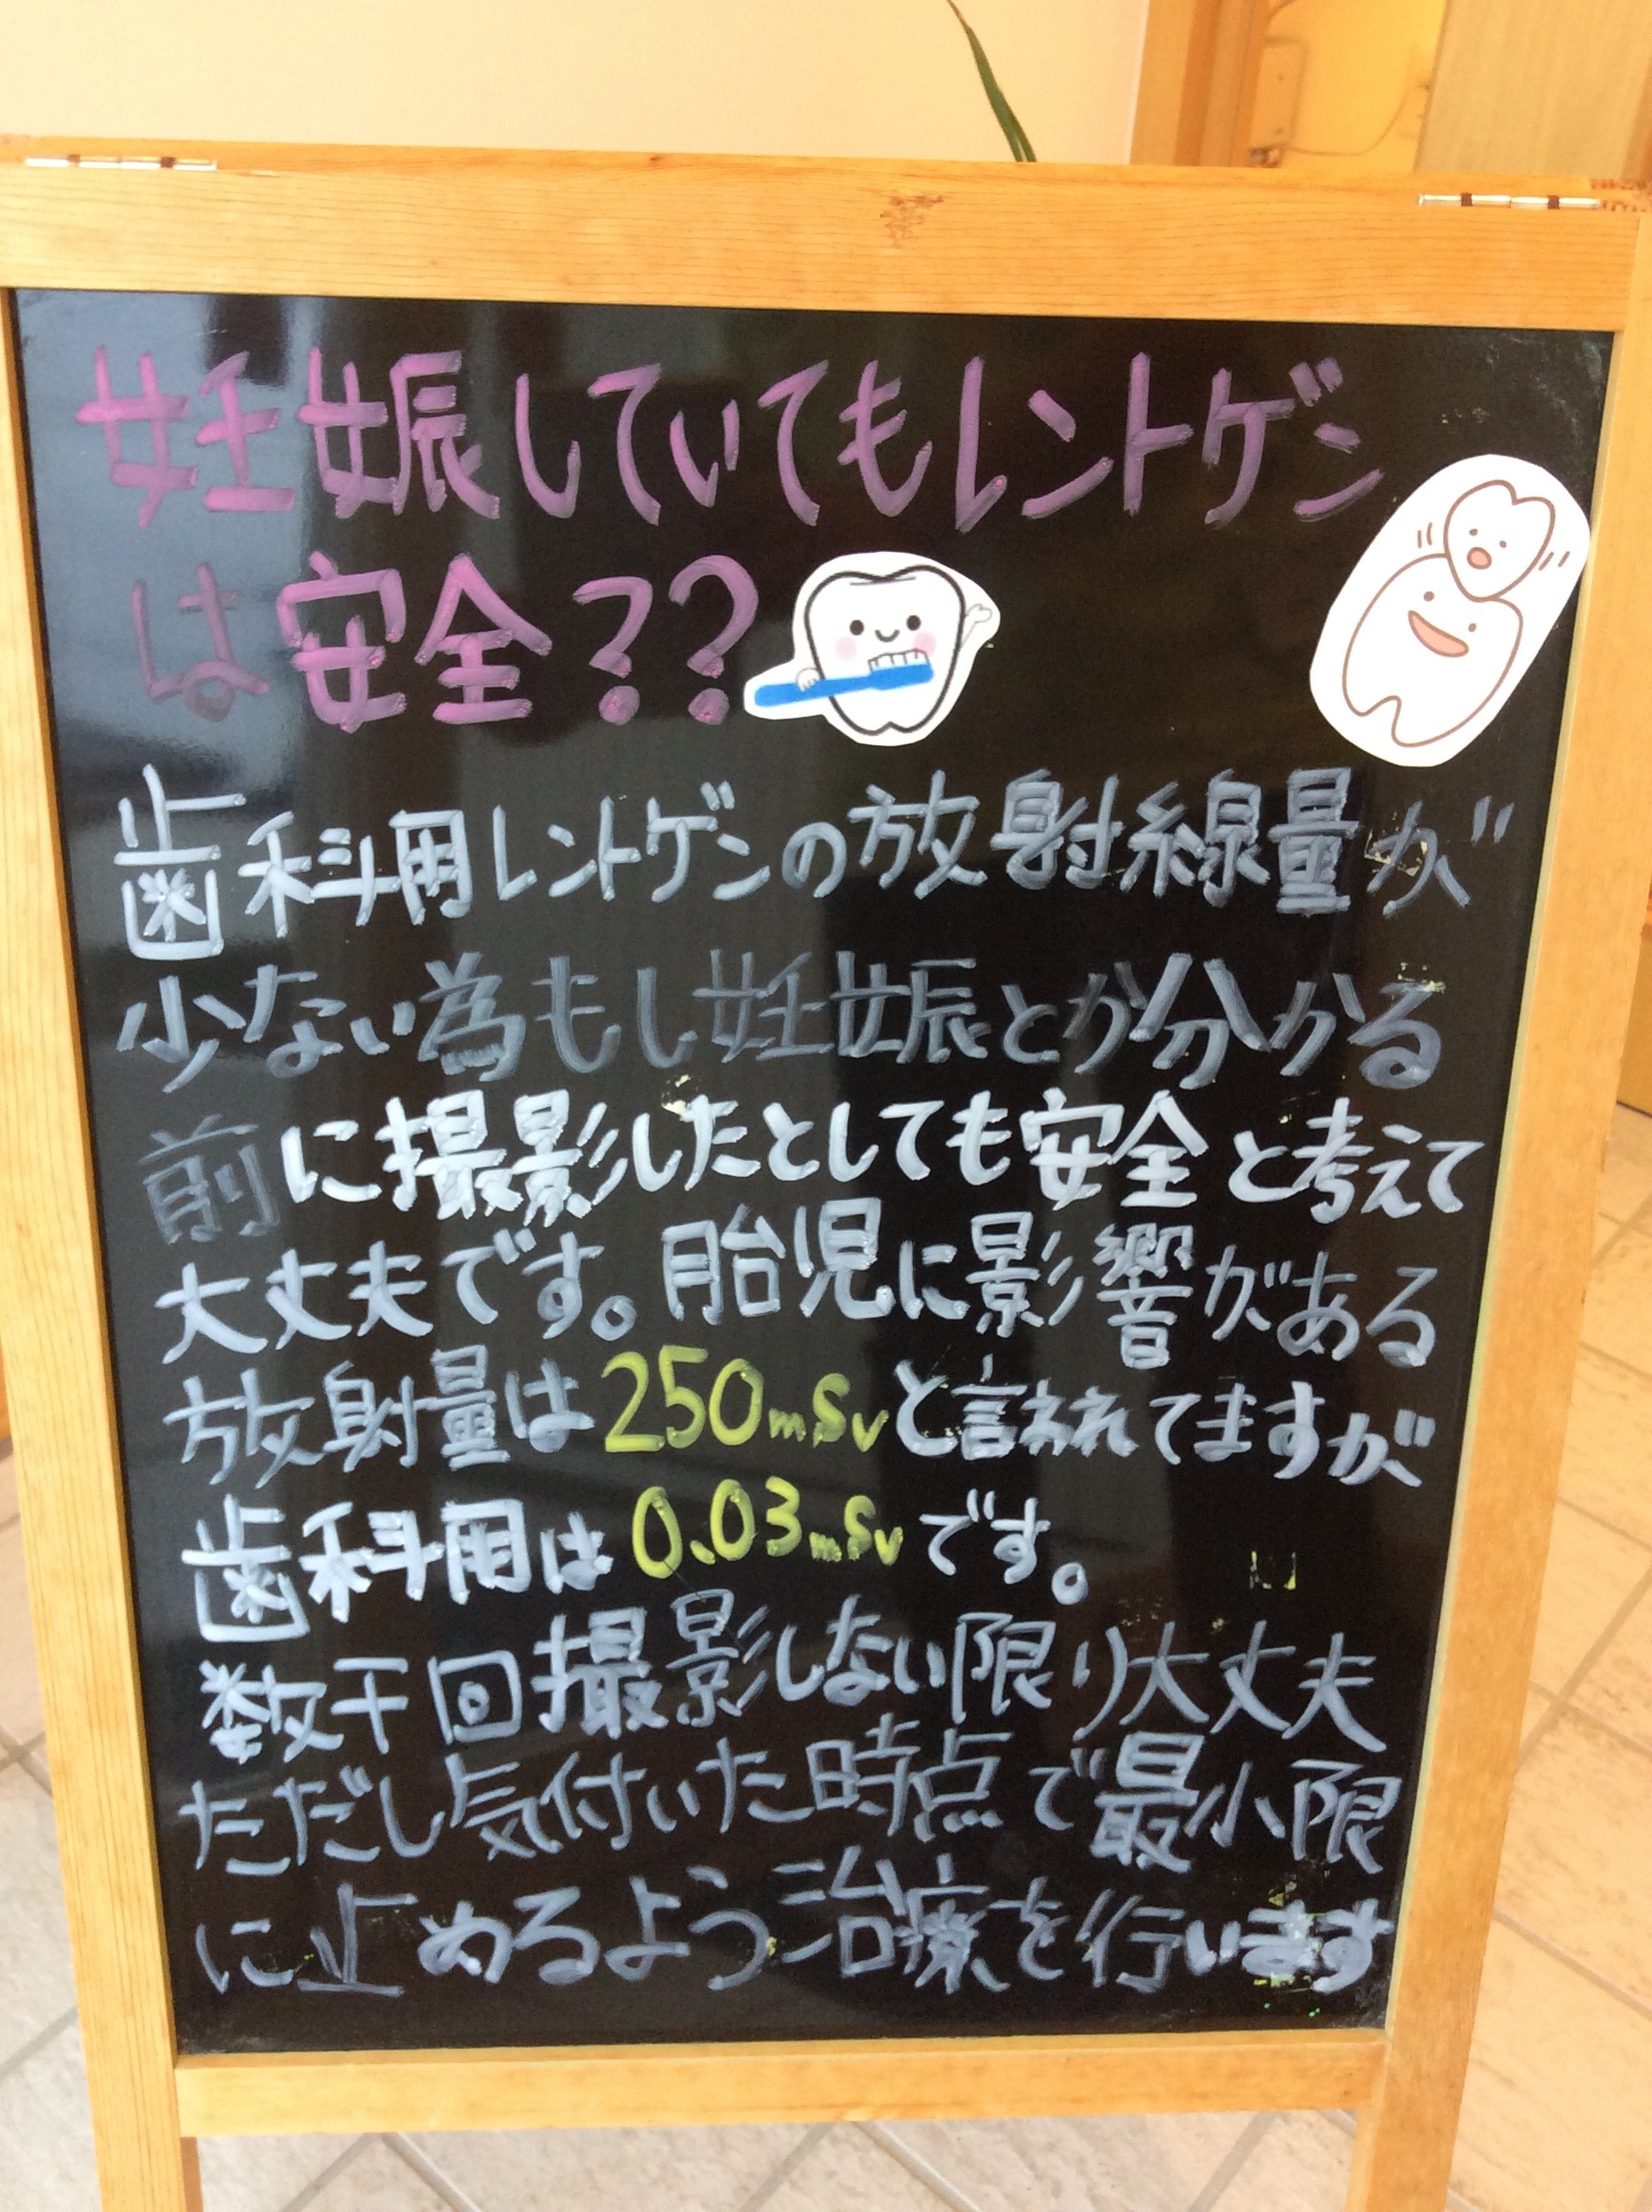 妊娠していてもレントゲン
は安全??
歯科用レントゲンの放射線量が
少ない為もし妊娠とか分かる
前に撮影したとしても安全と考えて
大丈夫です。胎児に影響がある
放射量は250mSvと言われてますが
歯科用は0.03mSvです。
数千回撮影しない限り大丈夫
ただし気付いた時点で最小限
に止めるよう治療を行います